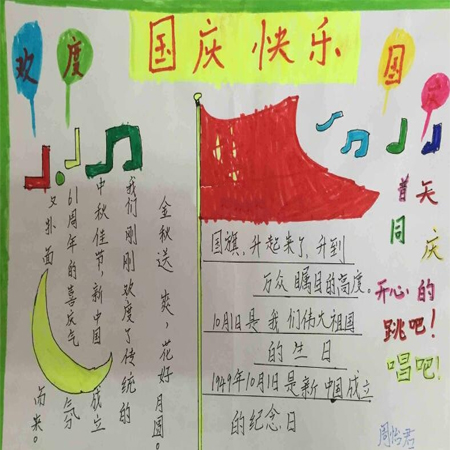 国庆快乐
欢度国
金秋送爽，花好月圆。
我们刚刚欢度了传统的
中秋佳节，新中国成立
61周年的喜庆气氛
又扑面而来。
国旗，升起来了，升到
万众瞩目的高度。
10月1日是我们伟大祖国
的生日
1949年10月1日是新中国成立
的纪念日
普天
同庆
开心的
跳吧！
唱吧！
周怡君